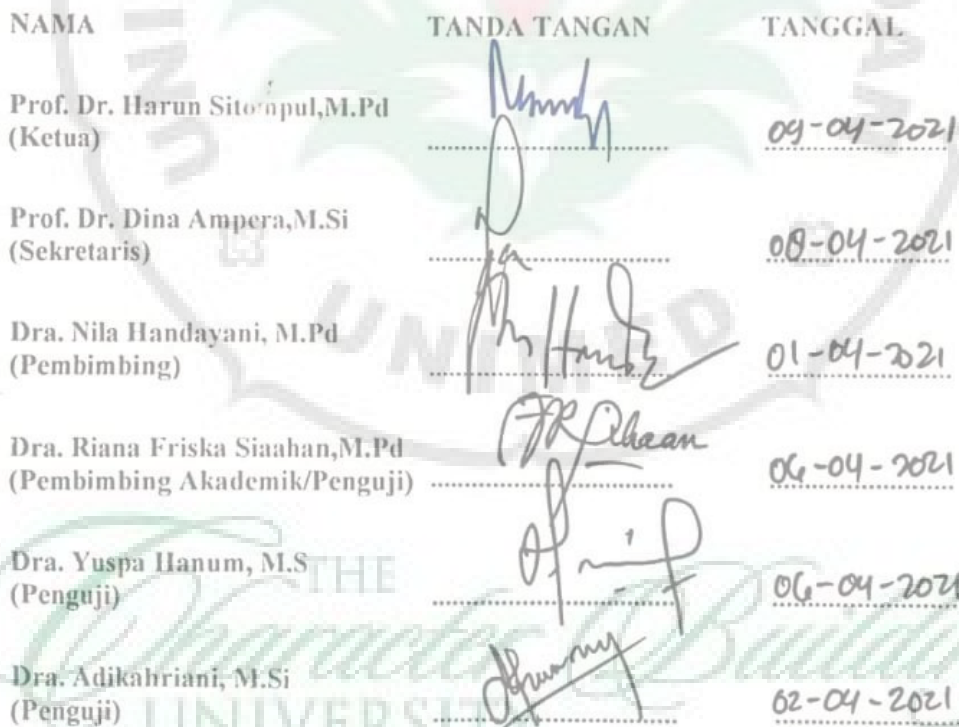 NAMA TANDA TANGAN TANGGAL
Prof. Dr. Harun Sitompul,M.Pd
(Ketua) 09-04-2021
Prof. Dr. Dina Ampera,M.Si
(Sekretaris) 08-04-2021
Dra. Nila Handayani, M.Pd
(Pembimbing) 01-04-2021
Dra. Riana Friska Siaahan,M.Pd
(Pembimbing Akademik/Penguji) 06-04-2021
Dra. Yuspa Hanum, M.S
(Penguji) 06-04-2021
Dra. Adikahriani, M.Si
(Penguji) 02-04-2021
UNIMED
THE
Character Building
UNIVERSITY